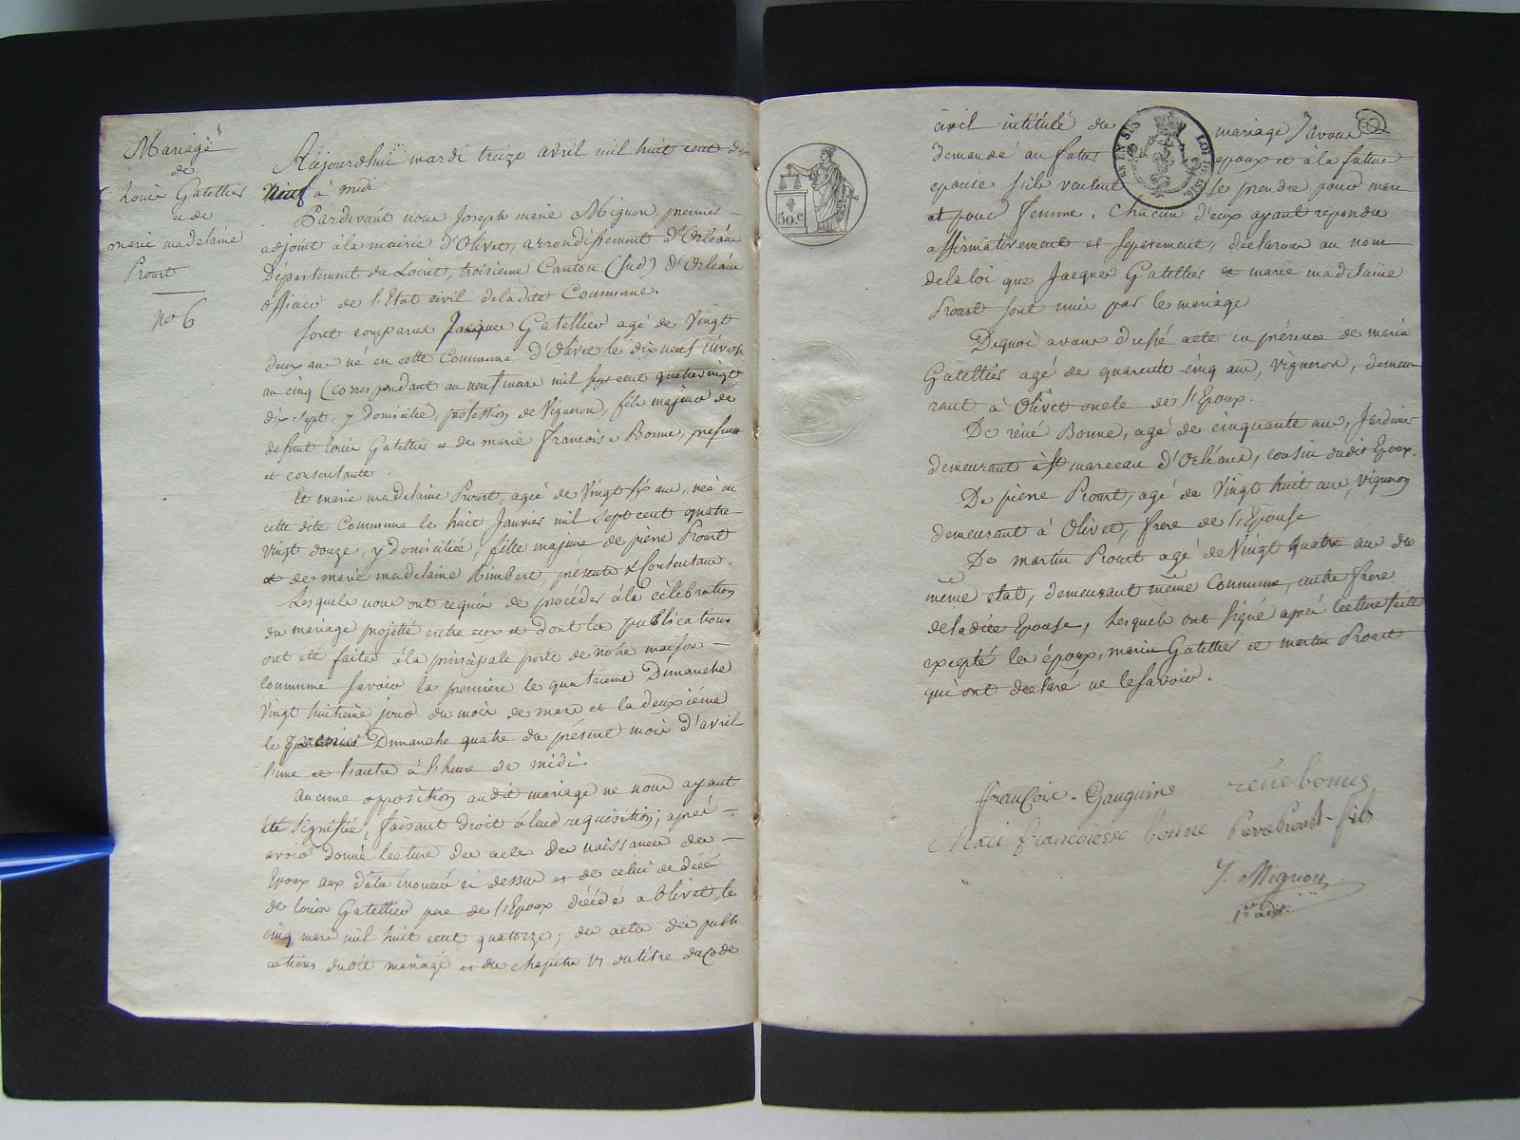 Mariage
de
Louis Gatellier
et de
marie madelaine
Proust
no 6
Aujourdhui mardi treize avril mil huit cent dix
Neuf à midi
Pardevant nous Joseph marie Mignon premier
adjoint à la mairie d'Olivet, arrondissement d'Orléans
Département du Loiret, troisieme Canton (Sud) d'Orléans
officier de l'Etat civil deladite Commune.
Sont comparus Jacques Gatellier agé de Vingt
deux ans né en cette Commune d'Olivet le dix neuf nivose
an cinq (correspondant au neuf mars mil sept cent quatrevingt
dix sept, y domicilié, profession de Vigneron, fils majeur de
defunt Louis Gatellier et de marie Francoise Bonne, presente
et consentante.
Et marie madelaine Proust, agée de Vingt six ans, née en
cette dite Commune le huit Janvier mil sept cent quatre
Vingt douze, y domiciliée, fille majeure de pierre Proust
et de marie madelaine Rimbert, présents et Consentans.
Lesquels nous ont requis de procéder à la célébration
du mariage projetté entre eux et dont les publications
ont été faites à la principale porte de notre maison
commune savoir la première le quatrieme Dimanche
Vingt huitieme jour du mois de mars et la deuxiéme
le Dimanche quatre du présent mois d'avril
l'une et l'autre à l'heure de midi.
Aucune opposition audit mariage ne nous ayant
été signifiée, faisant droit à leur requisition, après
avoir donné lecture des actes de naissances des
Epoux aux dates énoncés ci dessus et de celui de décès
de Louis Gatellier pere de l'Epoux décédé a Olivet le
cinq mars mil huit cent quatorze; des actes des publi
cations dudit mariage et du chapitre VI du titre du Code
civil intitulé du mariage, avons
demandé au futur epoux et à la future
epouse s'ils veulent se prendre pour mari
et pour femme. Chacun d'eux ayant repondu
affirmativement et separement, déclarons au nom
dela loi que Jacques Gatellier et marie madelaine
Proust sont unis par le mariage
Dequoi avons dressé acte en présence de marin
Gatellier agé de quarante cinq ans, vigneron, demeu
rant à Olivet oncle de l'Epoux.
De réné Bonne, agé de cinquante ans, Jardinier
demeurant à St marceau d'Orléans, cousin dudit Epoux.
De pierre Proust, agé de Vingt huit ans, vigneron
demeurant à Olivet, frere de l'Epouse
De martin Proust agé de Vingt quatre ans du
même etat, demeurant même Commune, autre frere
deladite Epouse, Lesquels ont signé après lecture faite
excepté les époux, marin Gatellier et martin Proust
qui ont declaré ne le savoir.
50.c
françois Gauguin
réné bonne
Mari francoisse bonne
Pierre Proust fils
J. Mignon
1er adjt.